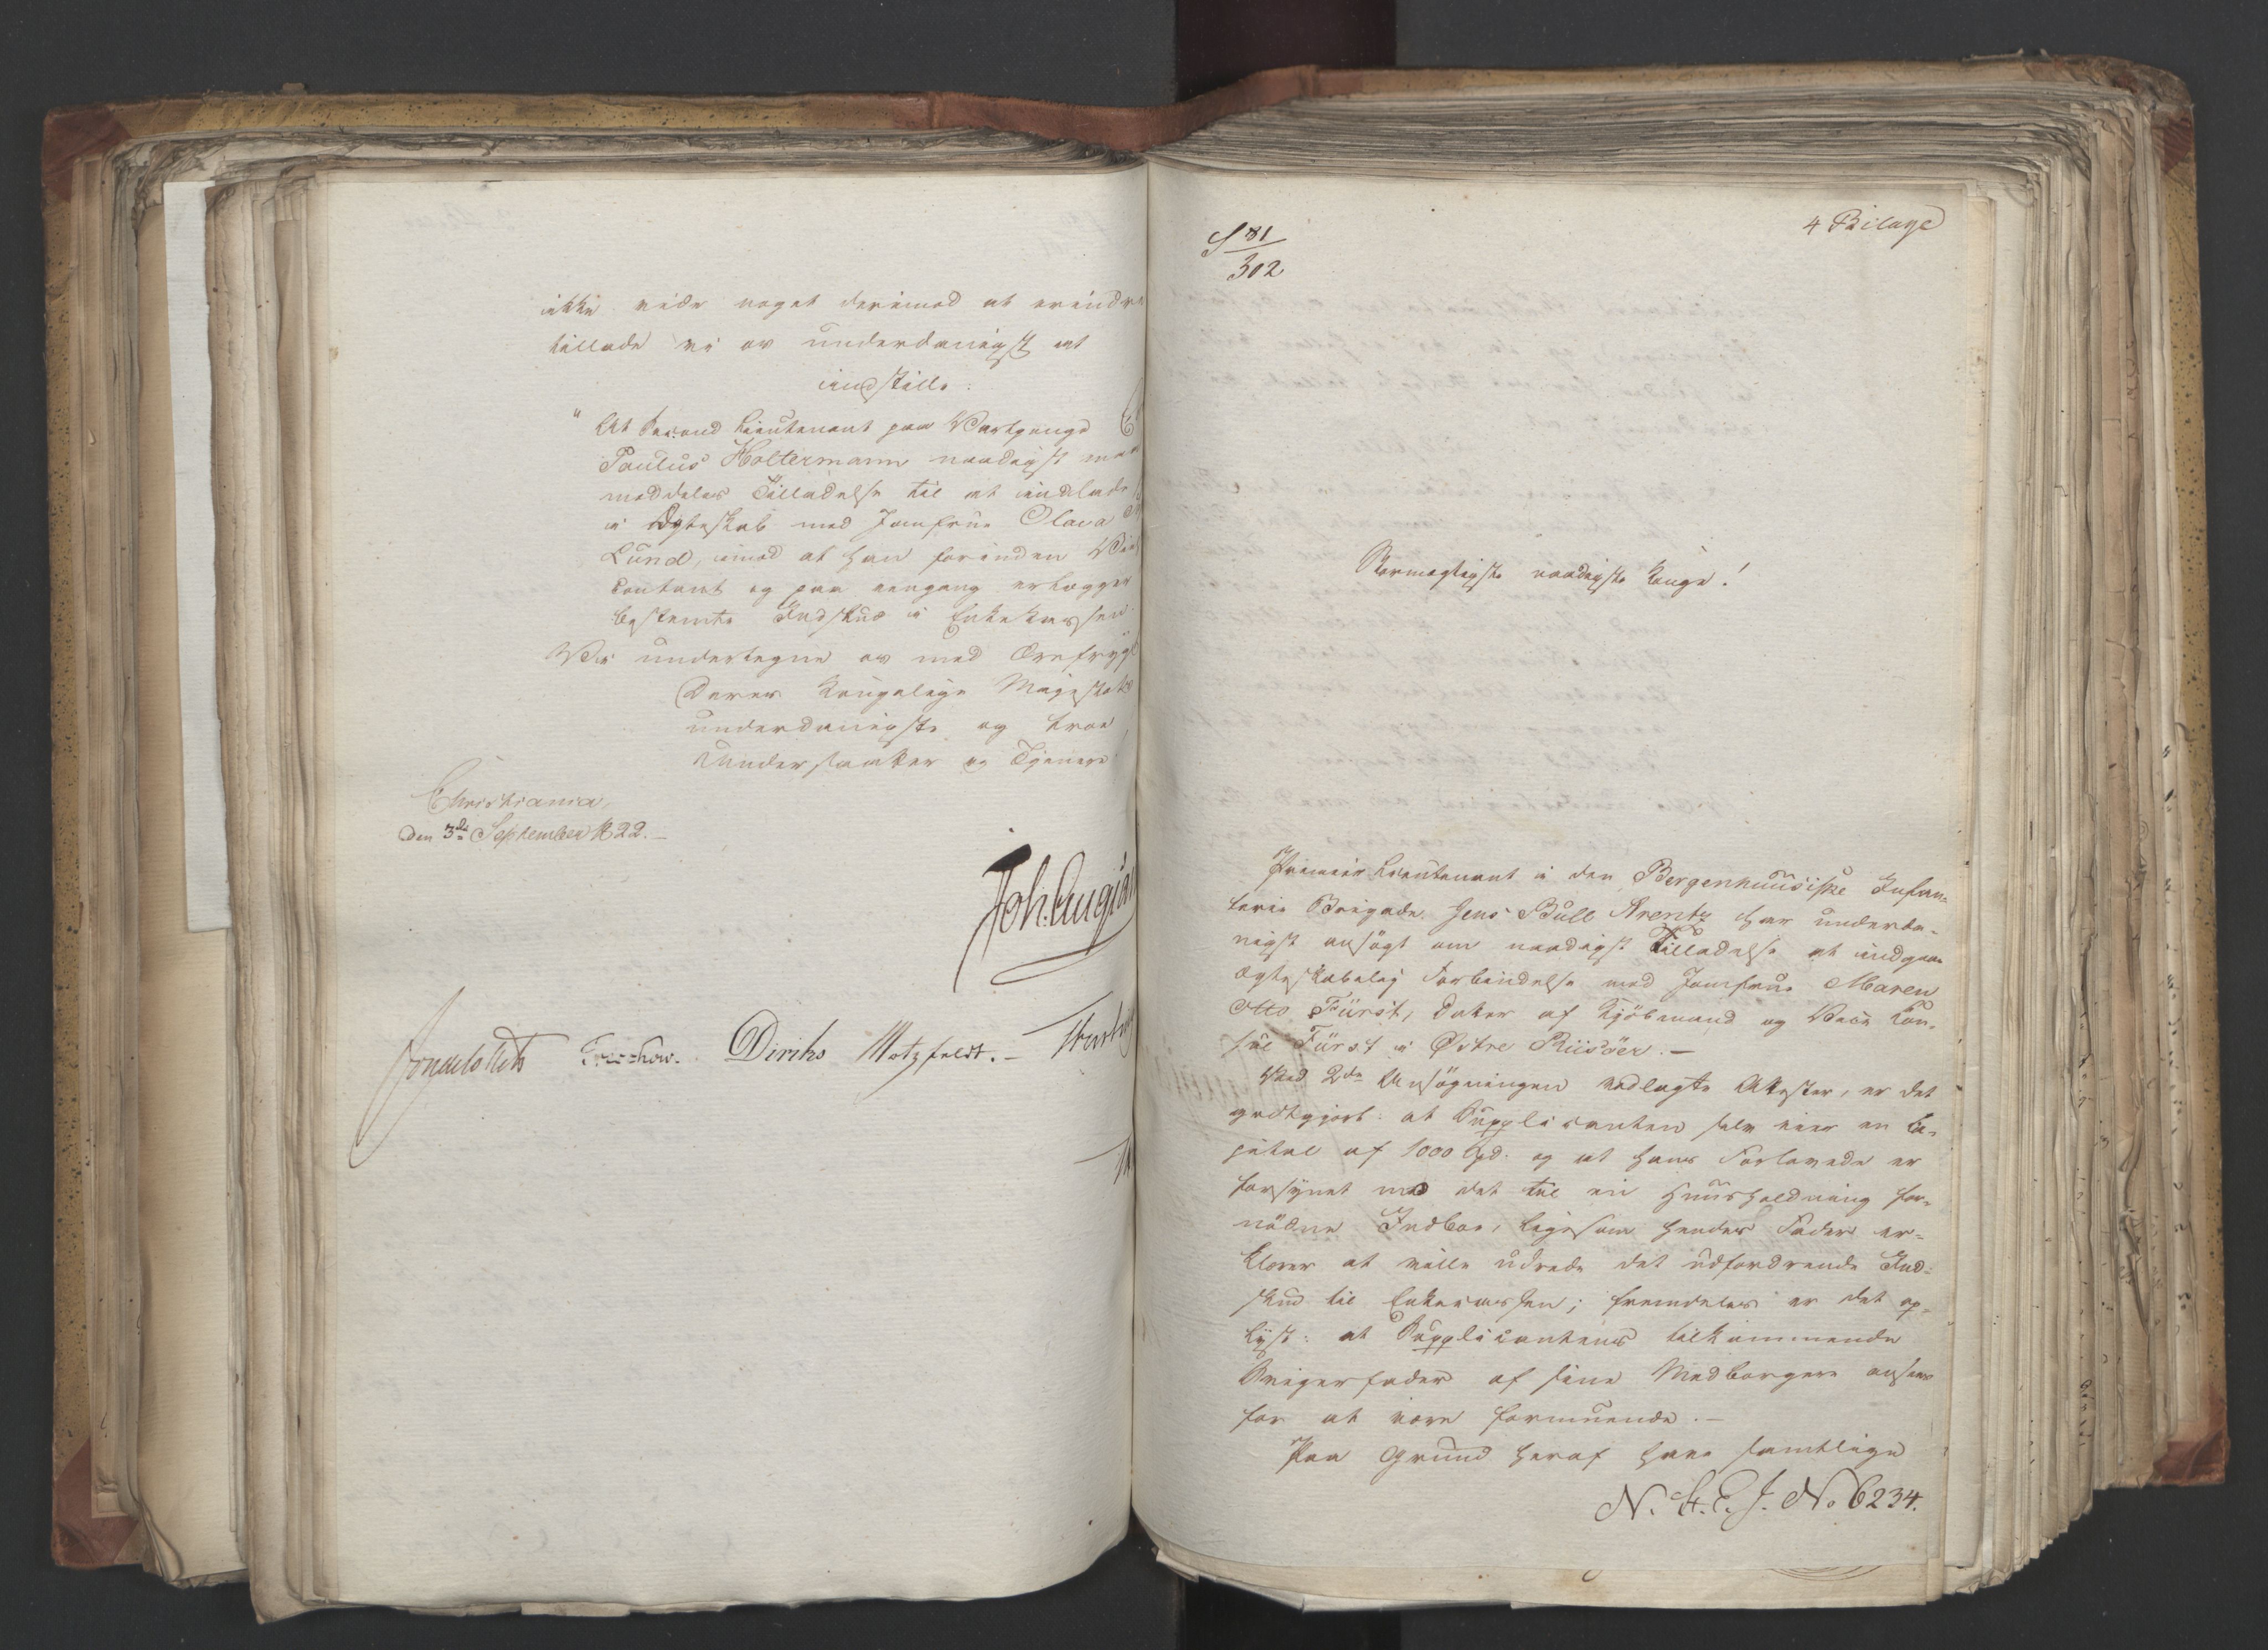 ikke vide noget derimod at erindre
tillade vi os underdanigst at
indstille:
" At Second Lieutenant paa Vartpenge
Paulus Holtermann naadigst maa
meddeles Tilladelse til at indlade
i Ægteskab med Jomfrue Olava
Lund, imod at han forinden
contant og paa eengang erlægger
bestemte Indskud i Enkekassen.
Vi undertegne os med Ærefrygt
Deres Kongelige Majestæts
underdanigste og troe
Undersaatter og Tjenere
Christiania,
den 3de September 1822.
Joh. Aug.
Treschow. Diriks Motzfeldt.
S 81
302
4 Bilage
Stormægtigste naadigste Konge!
Premier Lieutenant i den Bergenhuusiske Infan-
terie Brigade Jens Bull Arentz har underda-
nigst ansøgt om naadigst Tilladelse at indgaae
ægteskabelig Forbindelse med Jomfrue Maren
Otto Fürst, Datter af Kjöbmand og Vice Con-
sul Fürst i Østre Riisöer.-
Ved 2de Ansøgningen vedlagte Attester, er det
godtgjort: at Supplicanten selv eier en Ca-
pital af 1000 Spd. og at hans Forlovede er
forsynet med det til en Huusholdning for-
nödne Indboe, ligesom hendes Fader er-
klærer at ville udrede det udfordrende Ind-
skud til Enkecassen; fremdeles er det op-
lyst: at Supplicantens tilkommende
Svigerfader af sine Medborgere ansees
for at være formuende.-
Paa Grund heraf have samtlige
No 6234.